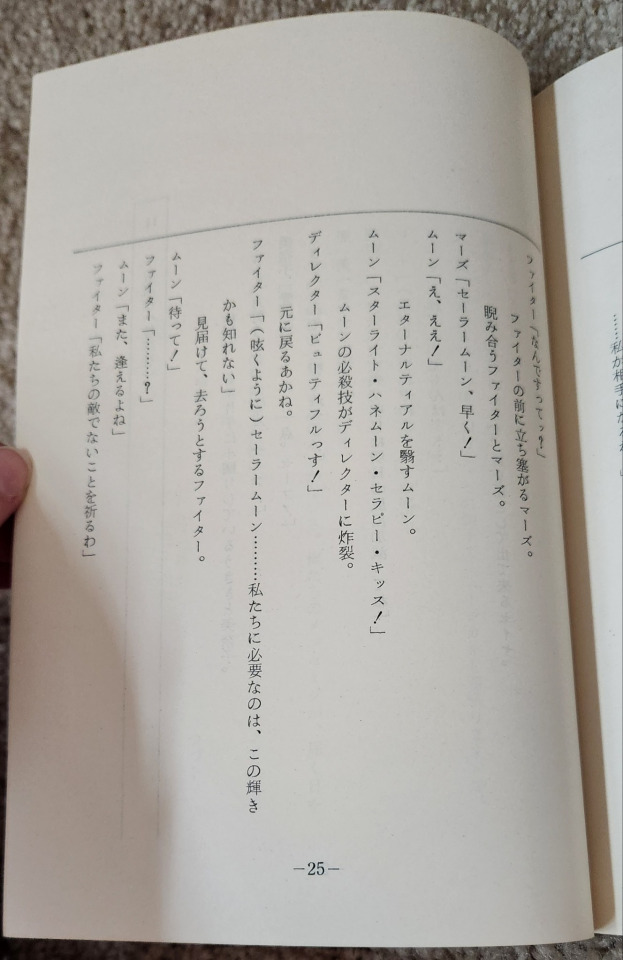 ファイター「なんですってッ?」
ファイターの前に立ち塞がるマーズ。
睨み合うファイターとマーズ。
マーズ「セーラームーン、早く!」
ムーン「え、ええ!」
エターナルティアルを翳すムーン。
ムーン「スターライト・ハネムーン・セラピー・キッス!」
ムーンの必殺技がディレクターに炸裂。
ディレクター「ビューティフルっす!」
元に戻るあかね。
ファイター「(呟くように)セーラームーン………私たちに必要なのは、この輝き
かも知れない」
見届けて、去ろうとするファイター。
ムーン「待って!」
ファイター「………?」
ムーン「また、逢えるよね」
ファイター「私たちの敵でないことを祈るわ」
—25—